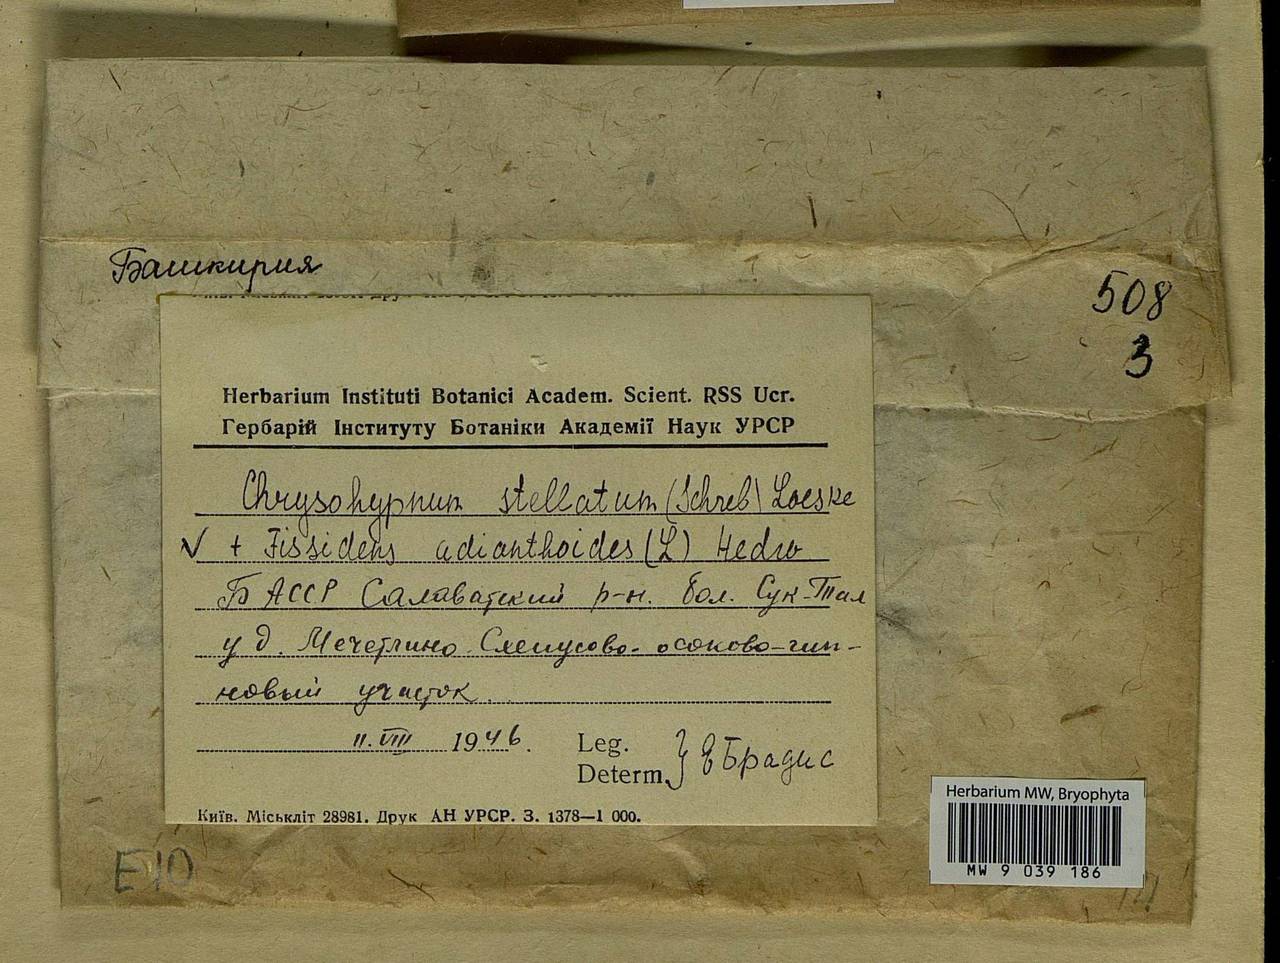 Башкирия
508
3
Herbarium Instituti Botanici Academ. Scient. RSS Ucr.
Гербарій Інституту Ботаніки Академії Наук УРСР
Chrysohypnum stellatum (Schreb) Loeske
√ + Fissidens adianthoides (L) Hedw
БАССР Салаватский р-н. бол. Сук-Тал
у д. Мечетлино. Схенусово-осоково-гип-
новый участок.
11.VIII 1946.
Leg.
Determ. } Е Брадис
Київ. Міськліт 28981. Друк АН УРСР. З. 1378—1 000.
E10
Herbarium MW, Bryophyta
MW 9 039 186